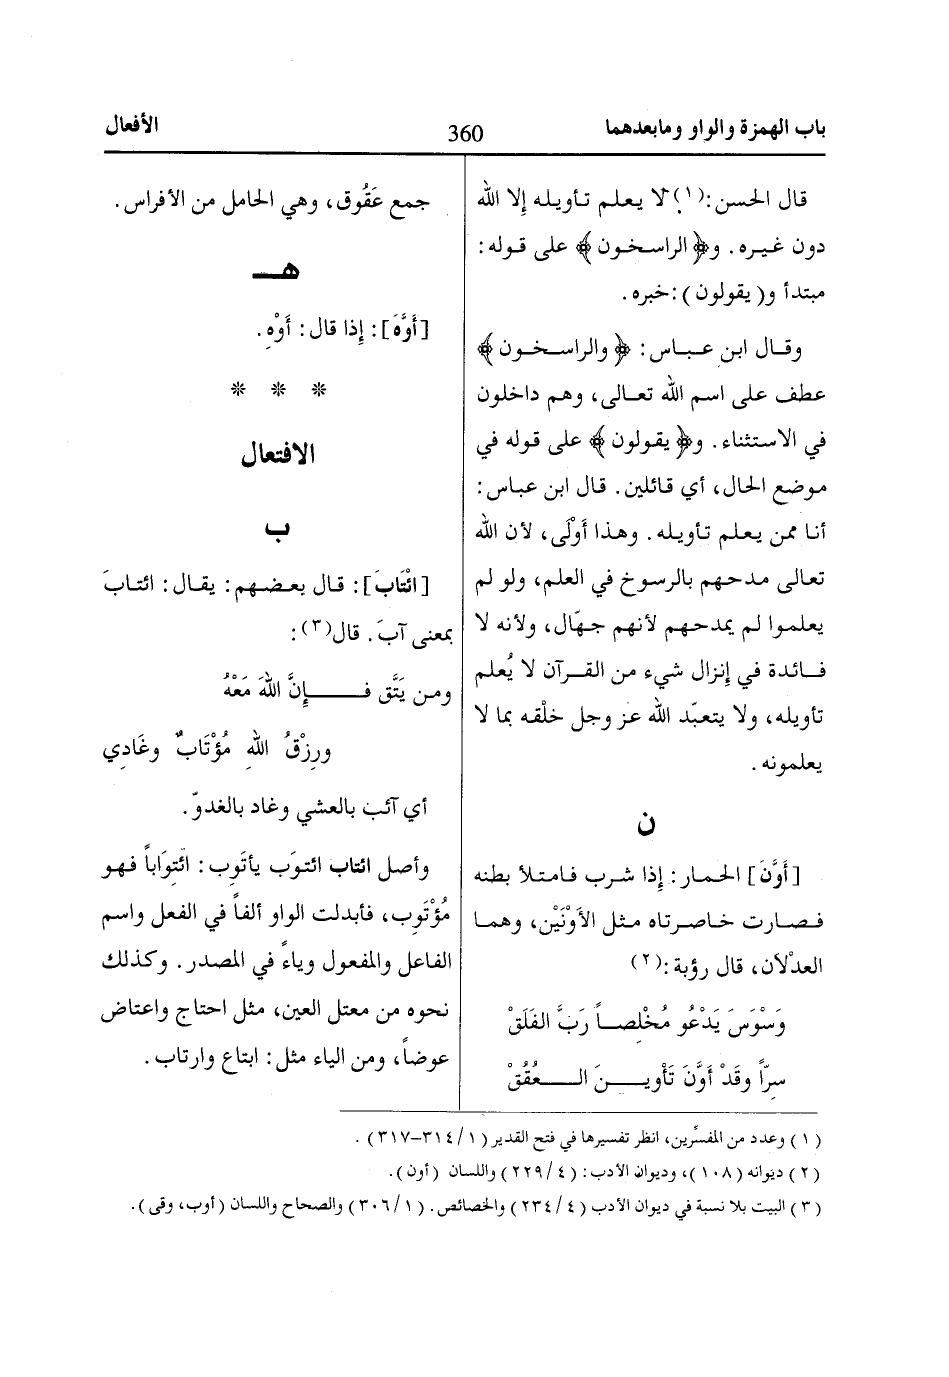 باب الهمزة والواو ومابعدهما
360
الأفعال
قال الحسن:(١) لا يعلم تأويله إلا الله
دون غيره. و﴿ الراسخون ﴾ على قوله:
مبتدأ و( يقولون ):خبره.
وقال ابن عباس: ﴿ والراسخون ﴾
عطف على اسم الله تعالى، وهم داخلون
في الاستثناء. و﴿ يقولون ﴾ على قوله في
موضع الحال، أي قائلين. قال ابن عباس:
أنا ممن يعلم تأويله. وهذا أَوْلَى، لأن الله
تعالى مدحهم بالرسوخ في العلم، ولو لم
يعلموا لم يمدحهم لأنهم جهّال، ولأنه لا
فائدة في إنزال شيء من القرآن لا يُعلم
تأويله، ولا يتعبّد الله عز وجل خلْقه بما لا
يعلمونه.
ن
[أَوَّنَ] الحمار: إذا شرب فامتلأ بطنه
فصارت خاصرتاه مثل الأَوْنَيْن، وهما
العدْلان، قال رؤبة:(٢)
وَسْوَسَ يَدْعُو مُخْلِصاً رَبَّ الفَلَقْ
سِرّاً وقَدْ أَوَّنَ تَأْوِيـنَ الـعُقُقْ
جمع عَقُوق، وهي الحامل من الأفراس.
هـ
[أَوَّهَ]: إذا قال: أَوْهِ.
* * *
الافتعال
ب
[ائْتَابَ]: قال بعضهم: يقال: ائتابَ
بمعنى آبَ. قال(٣):
ومن يَتَّق فـإِنَّ اللهَ مَعْهُ
ورِزْقُ اللهِ مُؤْتَابٌ وغَادِي
أي آئب بالعشي وغاد بالغدوّ.
وأصل ائتاب ائتوَب يأتَوِب: ائتِوَاباً فهو
مُؤْتَوِب، فأبدلت الواو ألفاً في الفعل واسم
الفاعل والمفعول وياءً في المصدر. وكذلك
نحوه من معتل العين، مثل احتاج واعتاض
عوضاً، ومن الياء مثل: ابتاع وارتاب.
(١) وعدد من المفسِّرين، انظر تفسيرها في فتح القدير (١/ ٣١٤-٣١٧).
(٢) ديوانه (١٠٨)، وديوان الأدب: (٤/ ٢٢٩) واللسان (أون).
(٣) البيت بلا نسبة في ديوان الأدب (٤/ ٢٣٤) والخصائص. (١/ ٣٠٦) والصحاح واللسان (أوب، وقى).